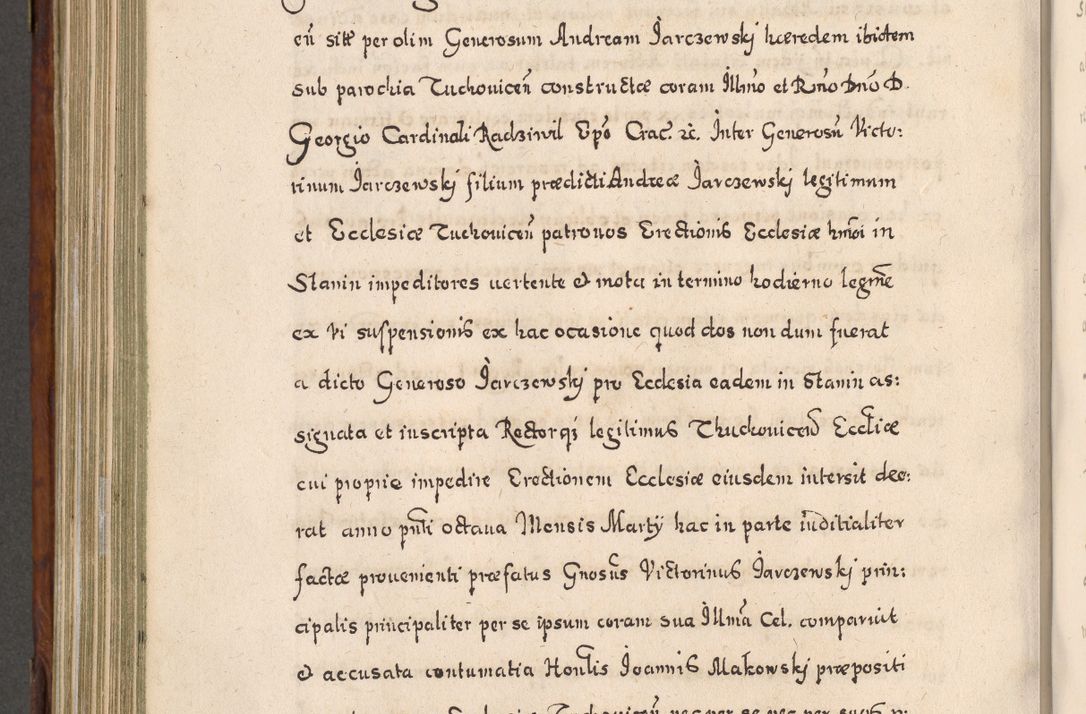 eñ sitæ per olim Generosum Andream Jarczewskj hæredem ibidem
sub parochia Tuchouiceñ constructæ coram Illm̃o et Rm̃o Dnõ D.
Georgio Cardinali Radziwil Epõ Crac̃ ꝛc. Inter Generosũ Victo:
rinum Jarczewskj filium prædicti Andreæ Jarczewskj legitimum
et Ecclesiæ Tuchouiceñ patronos Erectionis Ecclesiæ hmõi in
Stanin impeditores uertente et mota in termino hodierno legmẽ
ex vi suspensionis ex hac ocasione quod dos non dum fuerat
a dicto Generoso Jarczewskj pro Ecclesia eadem in Stanin as:
signata et inscripta Rectorq́ legitimus Thuchouiceñ Eccliæ
cui proprie impedire Erectionem Ecclesiæ eiusdem intersit dee:
rat anno pñti octaua Mensis Martÿ hac in parte iuditialiter
factæ prouenienti præfatus Gnosus Victorinus Jarczewskj prin:
cipalis principaliter per se ipsum coram sua Illmã Cel. comparuit
et accusata contumatia Honlis Joannis Makowskj præpositi